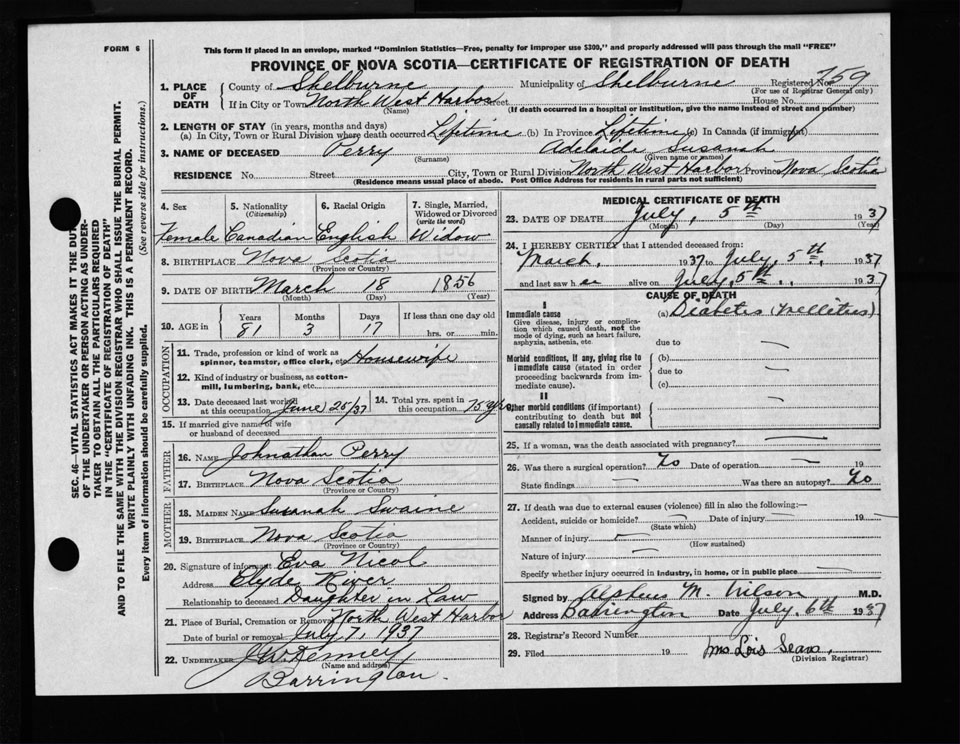 FORM 6
This form if placed in an envelope, marked "Dominion Statistics—Free, penalty for improper use $300," and properly addressed will pass through the mail "FREE"
PROVINCE OF NOVA SCOTIA—CERTIFICATE OF REGISTRATION OF DEATH
1. PLACE OF DEATH
County of Shelburne Municipality of Shelburne Registered No. 759
(For use of Registrar General only)
If in City or Town North West Harbor Street House No.
(Name) (If death occurred in a hospital or institution, give the name instead of street and number)
2. LENGTH OF STAY (in years, months and days)
(a) In City, Town or Rural Division where death occurred Lifetime (b) In Province Lifetime (c) In Canada (if immigrant)
3. NAME OF DECEASED Perry Adelaide Susanah
(Surname) (Given name or names)
RESIDENCE No. Street City, Town or Rural Division North West Harbor Province Nova Scotia
(Residence means usual place of abode. Post Office Address for residents in rural parts not sufficient)
4. Sex 5. Nationality (Citizenship) 6. Racial Origin 7. Single, Married, Widowed or Divorced (write the word)
Female Canadian English Widow
8. BIRTHPLACE Nova Scotia
(Province or Country)
9. DATE OF BIRTH March 18 1856
(Month) (Day) (Year)
10. AGE in Years Months Days If less than one day old
81 3 17 hrs. or min.
OCCUPATION
11. Trade, profession or kind of work as spinner, teamster, office clerk, etc. Housewife
12. Kind of industry or business, as cotton-mill, lumbering, bank, etc.
13. Date deceased last worked at this occupation June 25/37
14. Total yrs. spent in this occupation 75 yrs
15. If married give name of wife or husband of deceased
FATHER
16. NAME Johnathan Perry
17. BIRTHPLACE Nova Scotia
(Province or Country)
MOTHER
18. MAIDEN NAME Susanah Swaine
19. BIRTHPLACE Nova Scotia
(Province or Country)
20. Signature of informant Eva Nicol
Address Clyde River
Relationship to deceased Daughter in Law
21. Place of Burial, Cremation or Removal North West Harbor
Date of burial or removal July 7, 1937
22. UNDERTAKER J W Kenney
(Name and address)
Barrington.
MEDICAL CERTIFICATE OF DEATH
23. DATE OF DEATH July, 5th 1937
(Month) (Day) (Year)
24. I HEREBY CERTIFY that I attended deceased from:
March, 1937 to July, 5th, 1937
and last saw her alive on July, 5th, 1937
CAUSE OF DEATH
I
Immediate cause (a) Diabetes (Mellitus)
Give disease, injury or complication which caused death, not the mode of dying, such as heart failure, asphyxia, asthenia, etc.
due to
Morbid conditions, if any, giving rise to immediate cause (stated in order proceeding backwards from immediate cause).
(b)
due to
(c)
II
Other morbid conditions (if important) contributing to death but not causally related to immediate cause.
25. If a woman, was the death associated with pregnancy?
26. Was there a surgical operation? No Date of operation 19
State findings Was there an autopsy? No
27. If death was due to external causes (violence) fill in also the following:—
Accident, suicide or homicide? Date of injury 19
(State which)
Manner of injury
(How sustained)
Nature of injury
Specify whether injury occurred in industry, in home, or in public place
Signed by Alpheus M. Wilson M.D.
Address Barrington Date July, 6th 1937
28. Registrar's Record Number
29. Filed 19 Mrs Lois Sears
(Division Registrar)
SEC. 46—VITAL STATISTICS ACT MAKES IT THE DUTY OF THE UNDERTAKER OR PERSON ACTING AS UNDERTAKER TO OBTAIN ALL THE PARTICULARS REQUIRED IN THE "CERTIFICATE OF REGISTRATION OF DEATH" AND TO FILE THE SAME WITH THE DIVISION REGISTRAR WHO SHALL ISSUE THE BURIAL PERMIT.
WRITE PLAINLY WITH UNFADING INK. THIS IS A PERMANENT RECORD.
Every item of information should be carefully supplied. (See reverse side for instructions.)